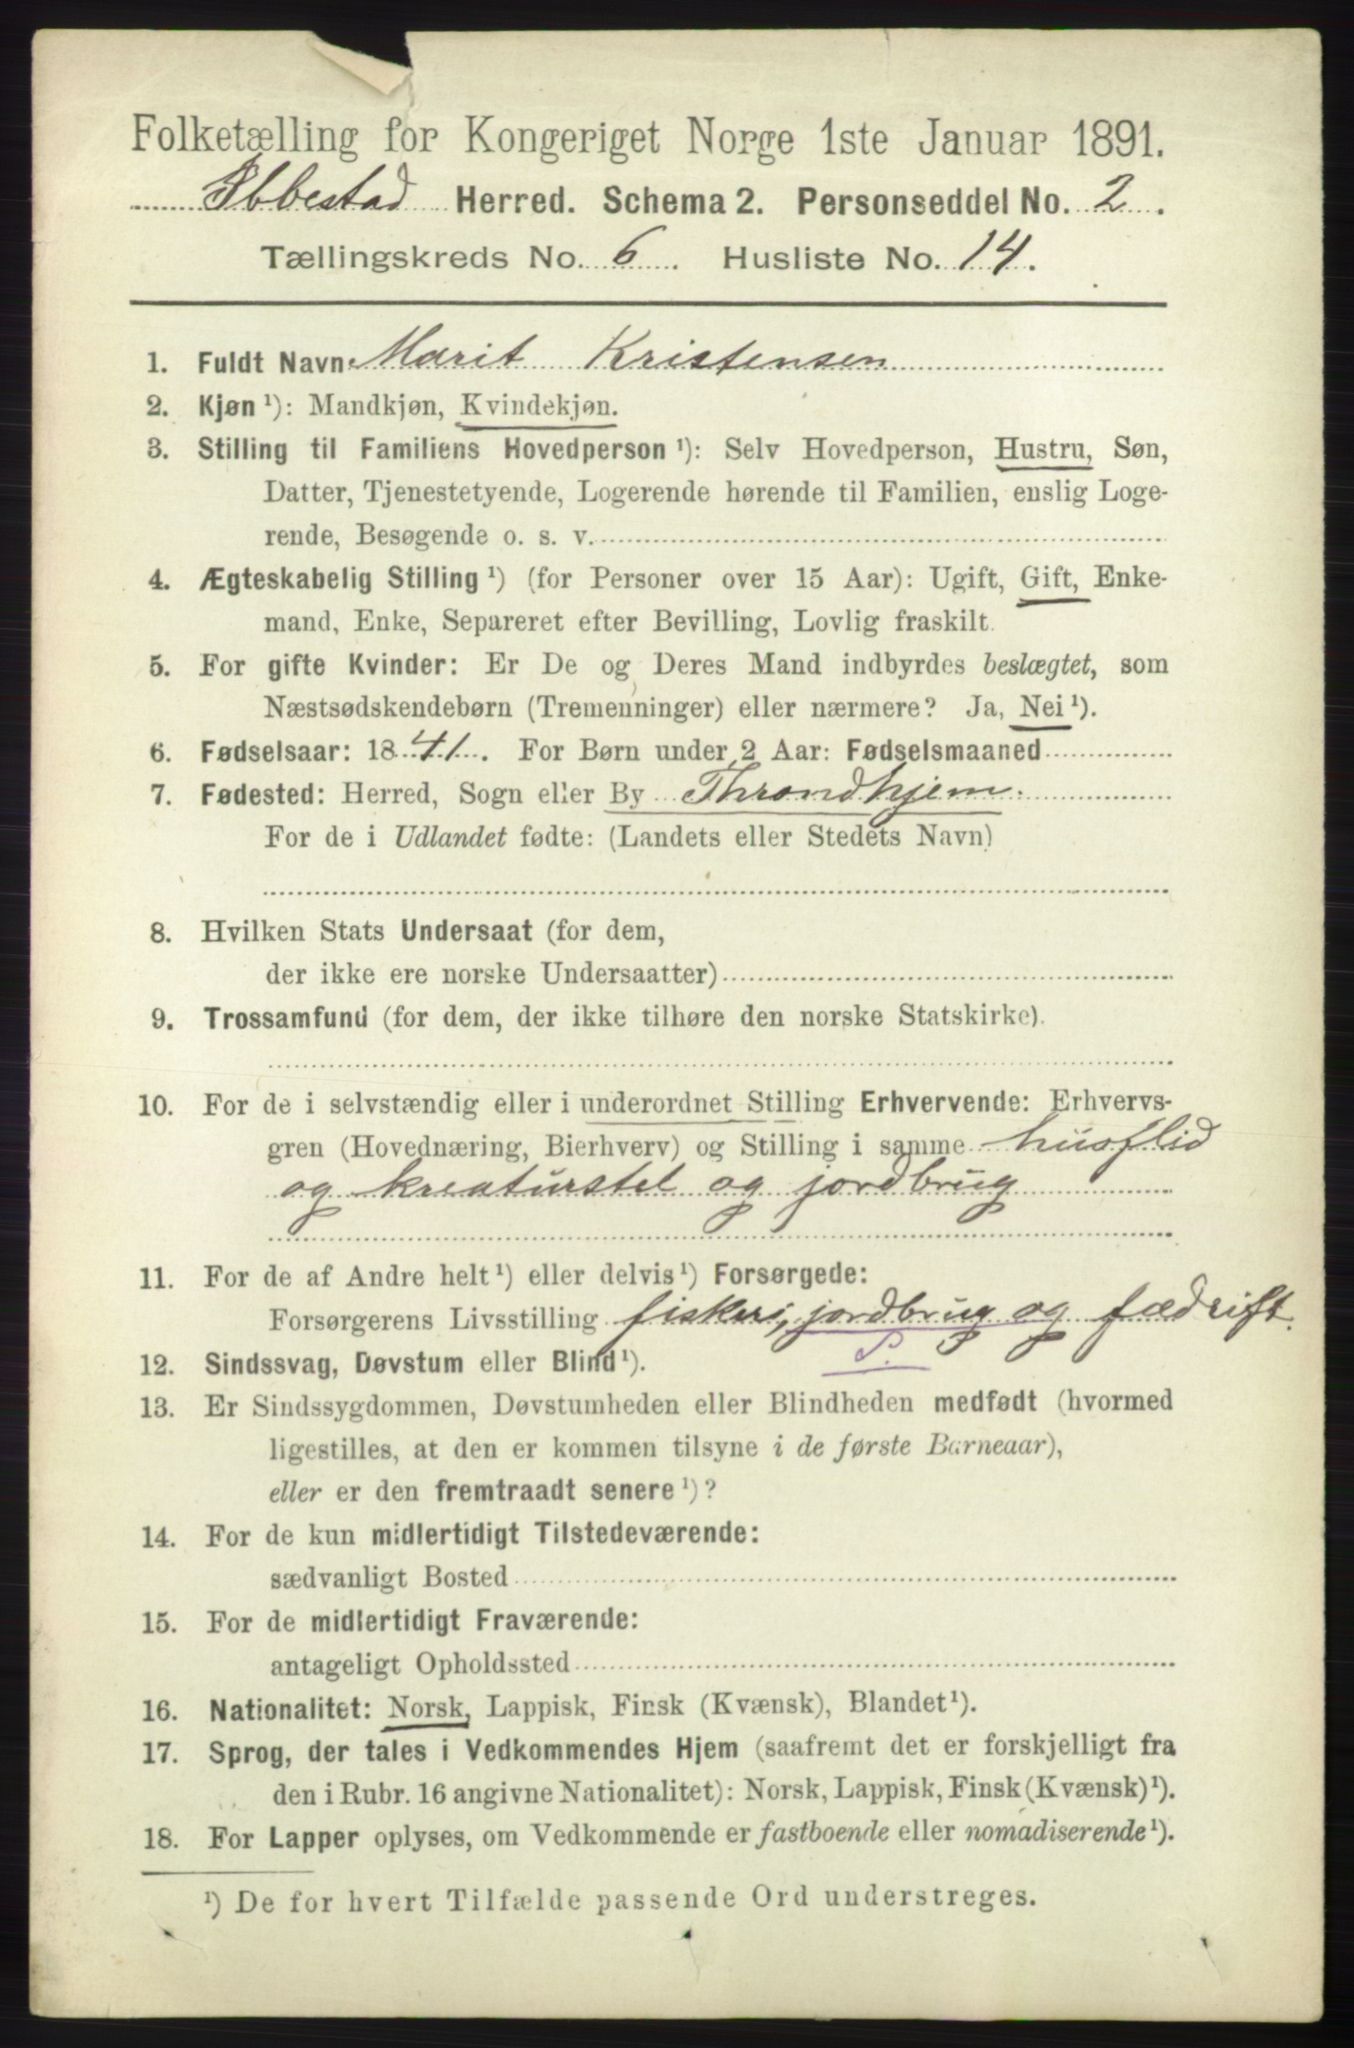 Folketælling for Kongeriget Norge 1ste Januar 1891.
Ibbestad Herred. Schema 2. Personseddel No. 2.
Tællingskreds No. 6. Husliste No. 14.
1. Fuldt Navn Marit Kristensen
2. Kjøn ¹): Mandkjøn, Kvindekjøn.
3. Stilling til Familiens Hovedperson ¹): Selv Hovedperson, Hustru, Søn,
Datter, Tjenestetyende, Logerende hørende til Familien, enslig Loge-
rende, Besøgende o. s. v.
4. Ægteskabelig Stilling ¹) (for Personer over 15 Aar): Ugift, Gift, Enke-
mand, Enke, Separeret efter Bevilling, Lovlig fraskilt.
5. For gifte Kvinder: Er De og Deres Mand indbyrdes beslægtet, som
Næstsødskendebørn (Tremenninger) eller nærmere? Ja, Nei ¹).
6. Fødselsaar: 1841. For Børn under 2 Aar: Fødselsmaaned
7. Fødested: Herred, Sogn eller By Throndhjem.
For de i Udlandet fødte: (Landets eller Stedets Navn)
8. Hvilken Stats Undersaat (for dem,
der ikke ere norske Undersaatter)
9. Trossamfund (for dem, der ikke tilhøre den norske Statskirke).
10. For de i selvstændig eller i underordnet Stilling Erhvervende: Erhvervs-
gren (Hovednæring, Bierhverv) og Stilling i samme husflid
og kreaturstel og jordbrug
11. For de af Andre helt ¹) eller delvis ¹) Forsørgede:
Forsørgerens Livsstilling fiskeri, jordbrug og fædrift.
S.
12. Sindssvag, Døvstum eller Blind ¹).
13. Er Sindssygdommen, Døvstumheden eller Blindheden medfødt (hvormed
ligestilles, at den er kommen tilsyne i de første Barneaar),
eller er den fremtraadt senere ¹)?
14. For de kun midlertidigt Tilstedeværende:
sædvanligt Bosted
15. For de midlertidigt Fraværende:
antageligt Opholdssted
16. Nationalitet: Norsk, Lappisk, Finsk (Kvænsk), Blandet ¹).
17. Sprog, der tales i Vedkommendes Hjem (saafremt det er forskjelligt fra
den i Rubr. 16 angivne Nationalitet): Norsk, Lappisk, Finsk (Kvænsk) ¹).
18. For Lapper oplyses, om Vedkommende er fastboende eller nomadiserende ¹).
¹) De for hvert Tilfælde passende Ord understreges.